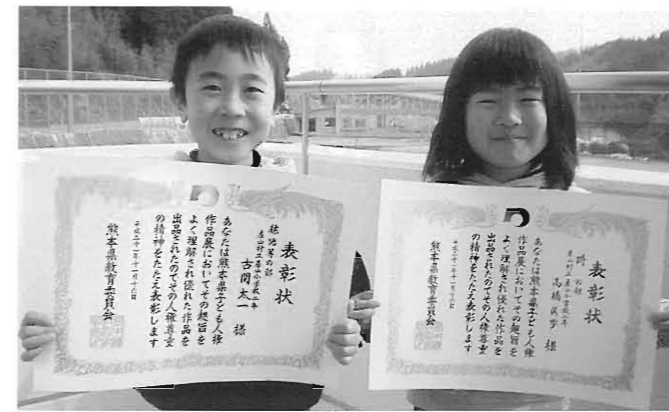 表彰状
標語等の部
産山村立産山小学校二年
古閑太一 様
あなたは熊本県子ども人権
作品展においてその趣旨を
よく理解され優れた作品を
出品されたのでその人権尊重
の精神をたたえ表彰します
平成二十一年十一月十六日
熊本県教育委員会
表彰状
詩の部
高橋 歩 様
あなたは熊本県子ども人権
作品展においてその趣旨を
よく理解され優れた作品を
出品されたのでその人権尊重
の精神をたたえ表彰します
熊本県教育委員会